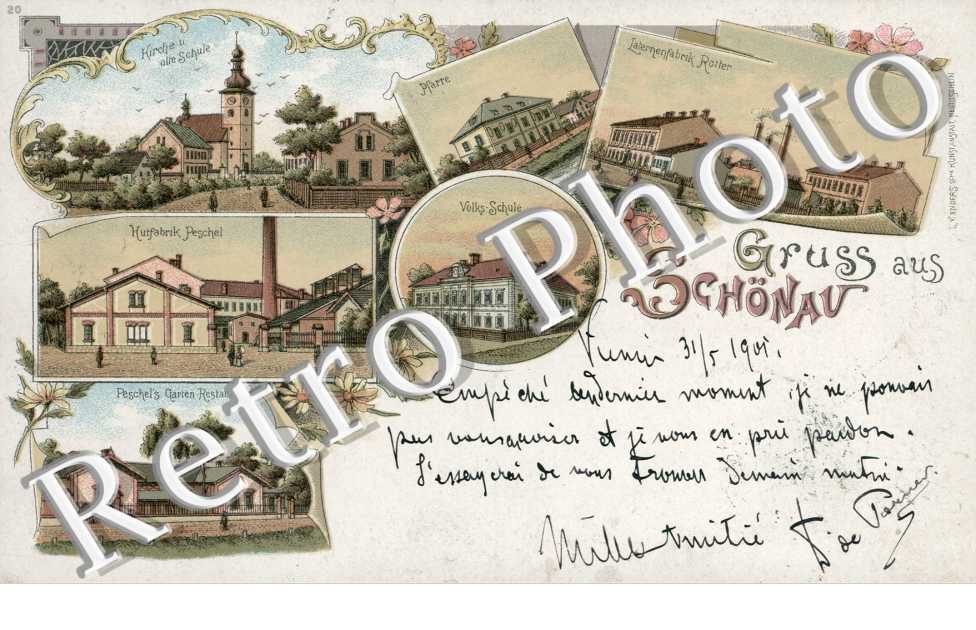 20
Kirche u.
alte Schule
Pfarre
Laternenfabrik Rotter
Hutfabrik Peschel
Volks-Schule
Gruss aus
Schönau
Peschel's Garten-Restau
31/5 1901.
Empêché au dernier moment, je ne pouvais
pas vous aviser et je vous en prie pardon.
J'essayerai de vous trouver demain matin
Mille Amitié
de
Retro Photo